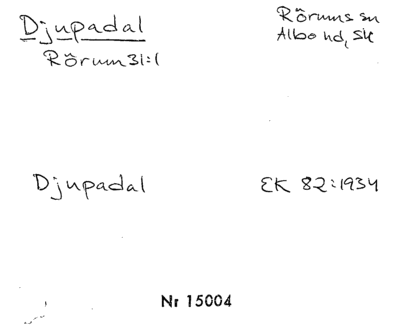 Djupadal
Rörums sn
Albo hd, Sk
Rörum 31:1
Djupadal
EK 82:1934
Nr 15004